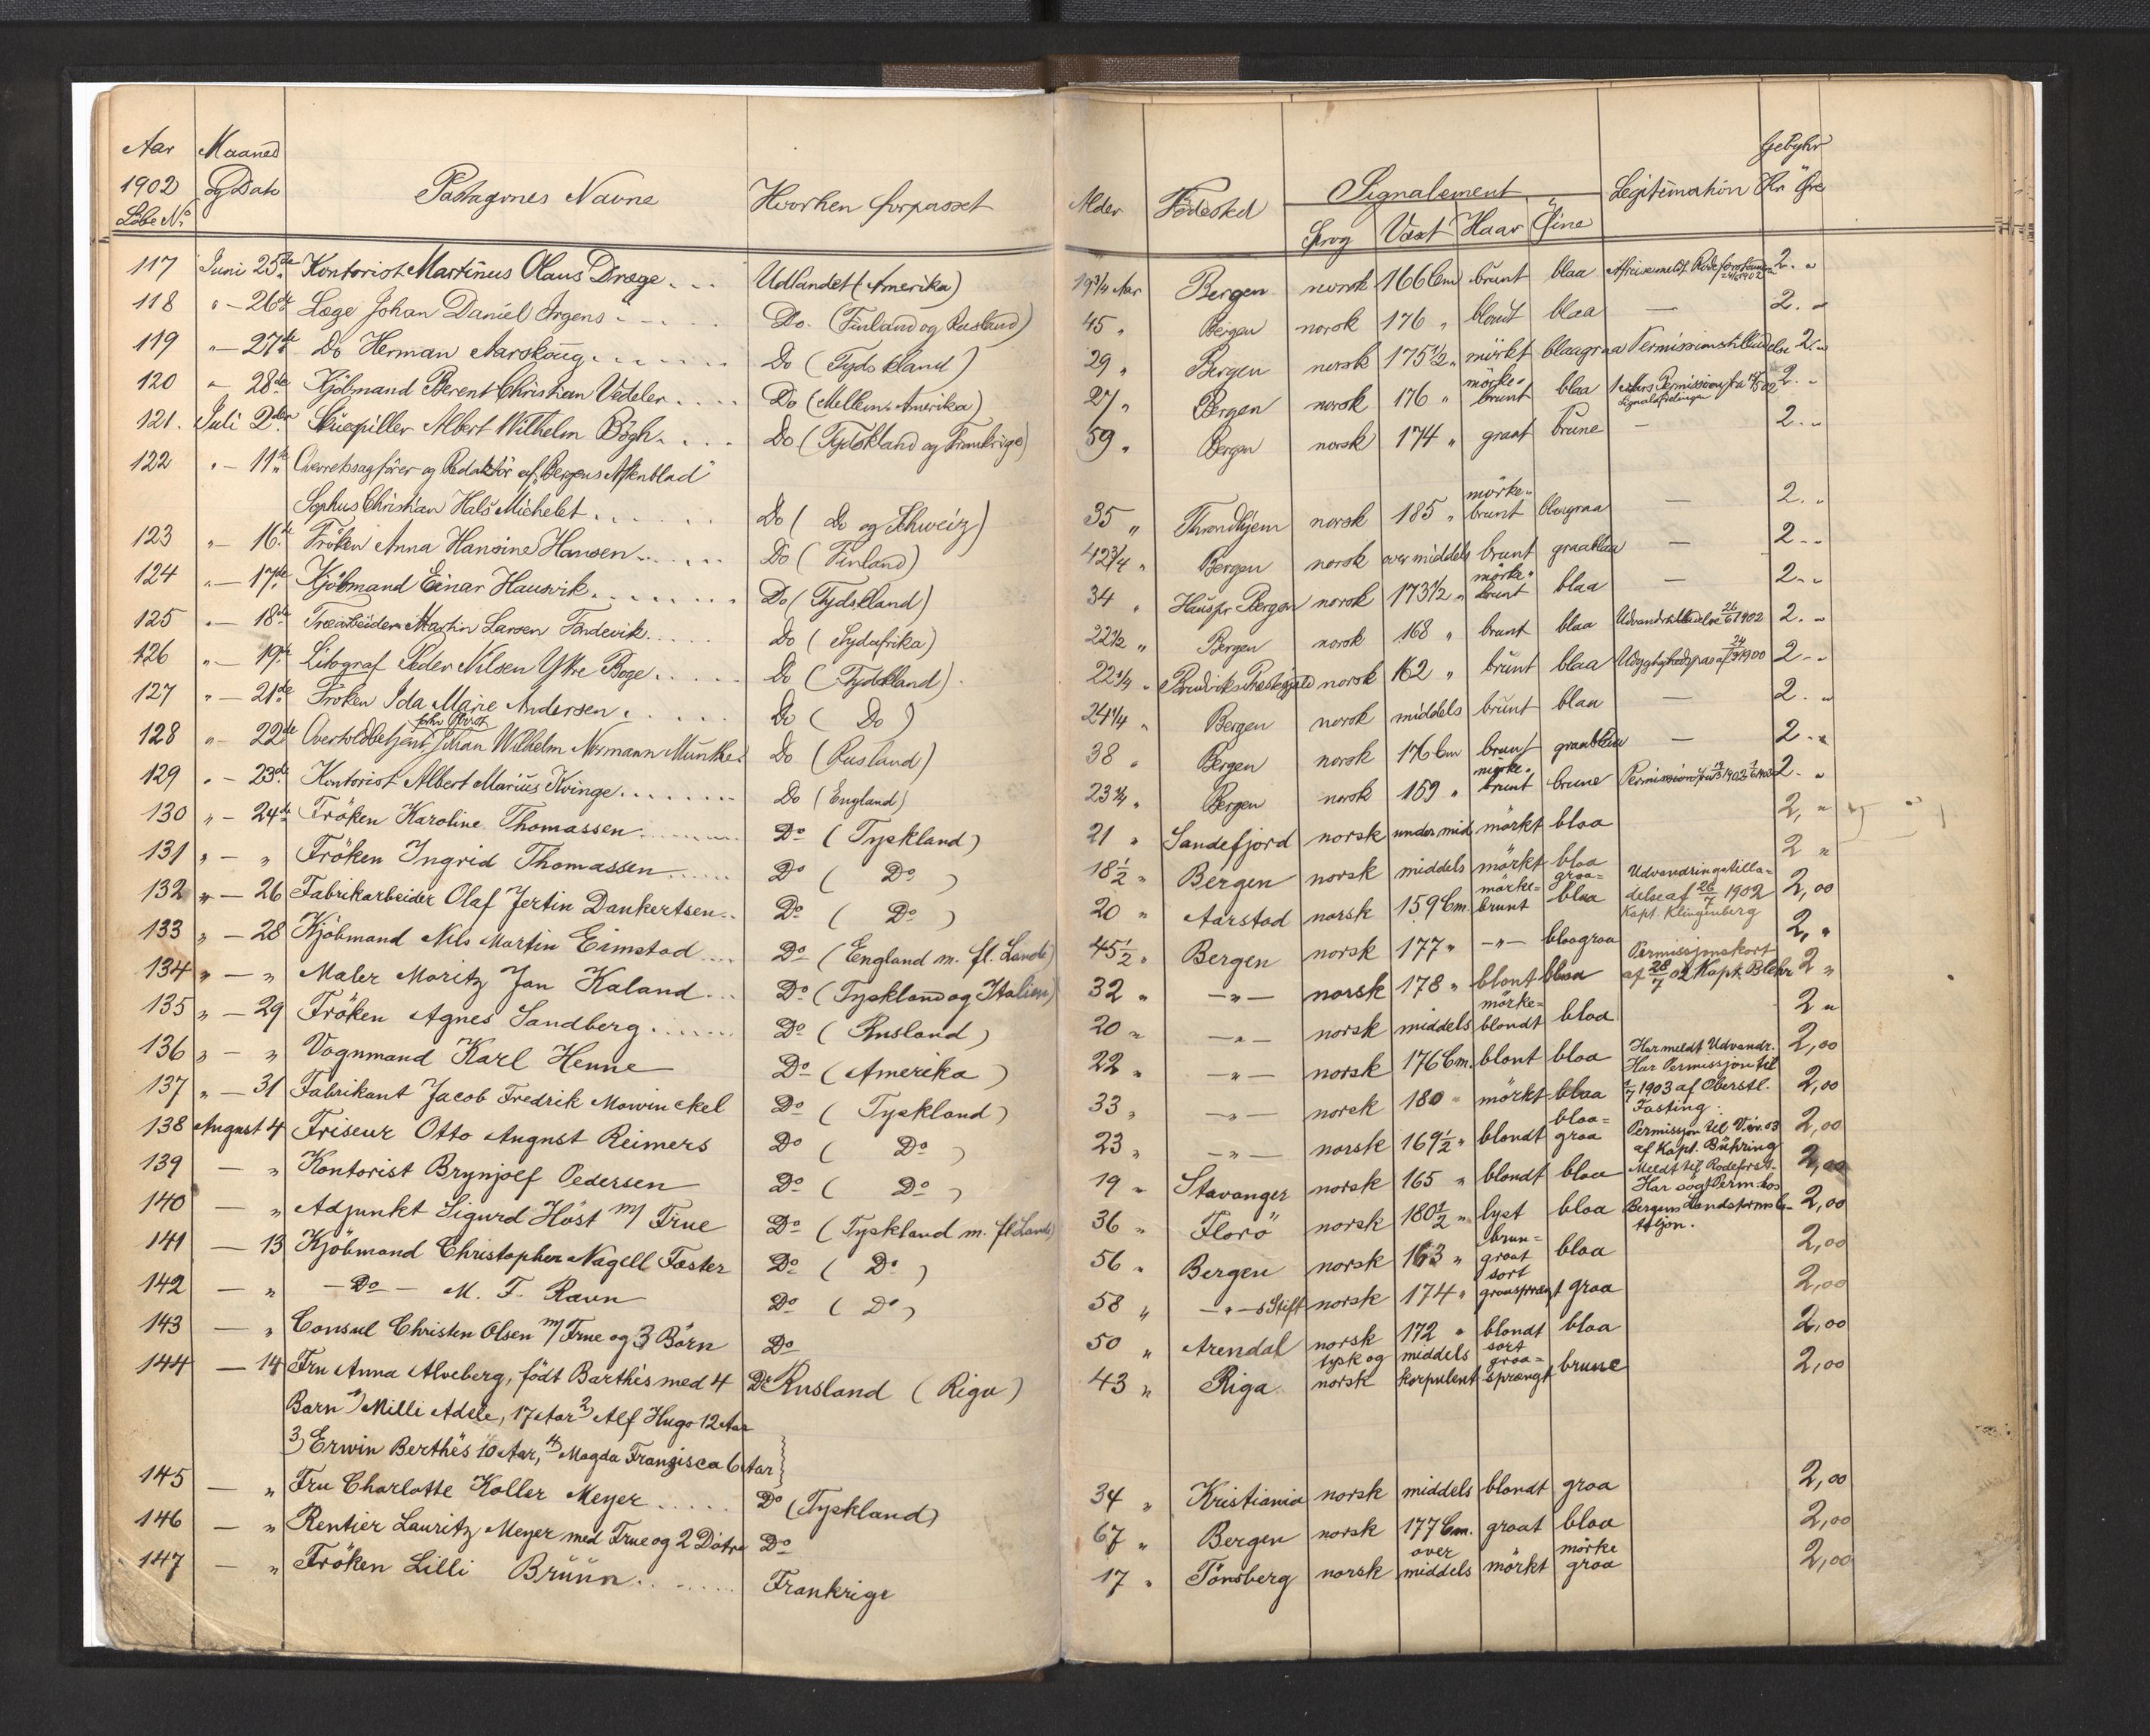 Aar Maaned
1902 og Dato Pastagernes Navne Hvorhen forpasset Alder Fødested Signalement Legitimation Gebyhr Kr Øre
Löbe No. Sprog Vaxt Haar Öine
117 Juni 25de Kontorist Martinus Olaus Dræge... Udlandet (Amerika) 19 3/4 Aar Bergen norsk 166 Cm brunt blaa 2. "
118 " - 26de Læge Johan Daniel Irgens... Do. (Finland og Rusland) 45 " Bergen norsk 176 " blondt blaa — 2. "
119 " - 27de Do Herman Aarskoug... Do (Tydskland) 29 " Bergen norsk 175 1/2 " mörkt blaagraa Permissionstilladelse 2. "
120 " 28de Kjöbmand Berent Christian Vedeler.... Do (Mellem-Amerika) 27 " Bergen norsk 176 " mörke-brunt blaa 2. "
121. Juli 2den Skuespiller Albert Wilhelm Bögh.... Do (Tydskland og Frankrige) 59 " Bergen norsk 174 " graat brune — 2. "
122 " - 11te Overretssagförer og Redaktör af "Bergens Aftenblad"
Sophus Christian Hals Michelet... Do ( Do og Schweiz) 35 " Throndhjem norsk 185 " mörke-brunt blaagraa — 2. "
123 " - 16de Fröken Anna Hansine Hansen... Do (Finland) 42 3/4 " Bergen norsk over middels brunt graablaa — 2 - "
124 " - 17de Kjöbmand Einar Hausvik... Do (Tydskland) 34 " Haus pr Bergen norsk 173 1/2 " mörke-brunt blaa — 2 - "
125 " - 18de Træarbeider Martin Larsen Tondevik... Do (Sydafrika) 22 1/2 " Bergen norsk 168 " brunt blaa Udvandrtilladelse 26/6 1902 2. "
126 " - 19de Litograf Peder Nilsen Ytre Boge... Do (Tydskland) 22 1/4 " Bruviks Præstegjæld norsk 162 " brunt blaa 2 - "
127 " - 21de Fröken Ida Marie Andersen... Do ( Do ) 24 1/4 " Bergen norsk middels brunt blaa — 2. "
128 " - 22de Overtoldbetjent Johan Wilhelm Normann Munthe Do (Rusland) 38 " Bergen norsk 176 Cm brunt graablaa — 2 - "
129 " - 23de Kontorist Albert Marius Kvinge... Do (England) 23 1/4 " Bergen norsk 159 " mörke-brunt brune 2. "
130 " - 24de Fröken Karoline Thomassen... Do (Tyskland) 21 " Sandefjord norsk under mid. mörkt blaa 2, "
131 " - " Fröken Ingrid Thomassen... Do ( Do ) 18 1/2 " Bergen norsk middels mörkt blaa 2 "
132 " - 26 Fabrikarbeider Olaf Jertin Dankertsen.. Do ( Do ) 20 " Aarstad norsk 159 Cm. mörke=brunt graa=blaa Udvandringstilla=delse af 26/7 1902 Kapt. Klingenberg 2,00
133 " - 28 Kjöbmand Nils Martin Eimstad... Do (England m. fl. Lande) 45 1/2 " Bergen norsk 177 " - " - blaagraa 2, "
134 " - " Maler Moritz Jan Kaland... Do (Tyskland og Italien) 32 " - " - norsk 178 " blont blaa Permissjonskort af 28/7 02 Kapt. Blehr 2 "
135 " - 29 Fröken Agnes Sandberg... Do (Rusland) 20 " - " - norsk middels mörke=blondt blaa 2 "
136 " - " Vognmand Karl Henne Do (Amerika) 22 " - " - norsk 176 Cm. blont blaa Har meldt Udvandr. 2,00
137 " - 31 Fabrikant Jacob Fredrik Mowinckel Do (Tyskland) 33 " - " - norsk 180 " mörkt blaa Har Permissjon til 1/7 1903 af Oberstl. Fasting. 2,00
138 August 4 Friseur Otto August Reimers Do ( Do ) 23 " - " - norsk 169 1/2 " blondt blaa=graa Permissjon til V. 03 af Kapt. Bühring 2,00
139 - " Kontorist Brynjolf Pedersen Do ( Do ) 19 " Stavanger norsk 165 " blondt blaa Meldt til Rodeforst. 2,00
140 - " Adjunkt Sigurd Höst m/ Frue Do (Tyskland m. fl Lande) 36 " Florö norsk 180 1/2 " lyst blaa Har sögt Perm. hos Bergens Landstormsba-taljon. 2,00
141 - 13 Kjöbmand Christopher Nagell Faster Do ( Do ) 56 " Bergen norsk 163 " brun=graat blaa 2,00
142 - " - Do - M. F. Ravn Do ( Do ) 58 " - " - s Stift norsk 174 " sort graasprængt graa 2,00
143 - " Consul Christen Olsen m/ Frue og 3 Börn Do 50 " Arendal norsk 172 " blondt blaa 2,00
144 - 14 Fru Anna Alveberg, födt Barthès med 4 Do Rusland (Riga) 43 " Riga tysk og norsk middels korpulent sort graa=sprængt brune 2,00
Barn 1) Milli Adele, 17 Aar 2) Alf Hugo 12 Aar
3) Erwin Berthès 10 Aar, 4) Magda Franzisca 6 Aar
145 - " Fru Charlotte Koller Meyer..... Do (Tyskland) 34 " Kristiania norsk middels blondt graa 2,00
146 - " Rentier Lauritz Meyer med Frue og 2 Dötre Do 67 " Bergen norsk 177 Cm. graat blaa 2,00
147 - " Fröken Lilli Brüün... Frankrige 17 " Tönsberg norsk over middels mörkt mörke graa 2,00